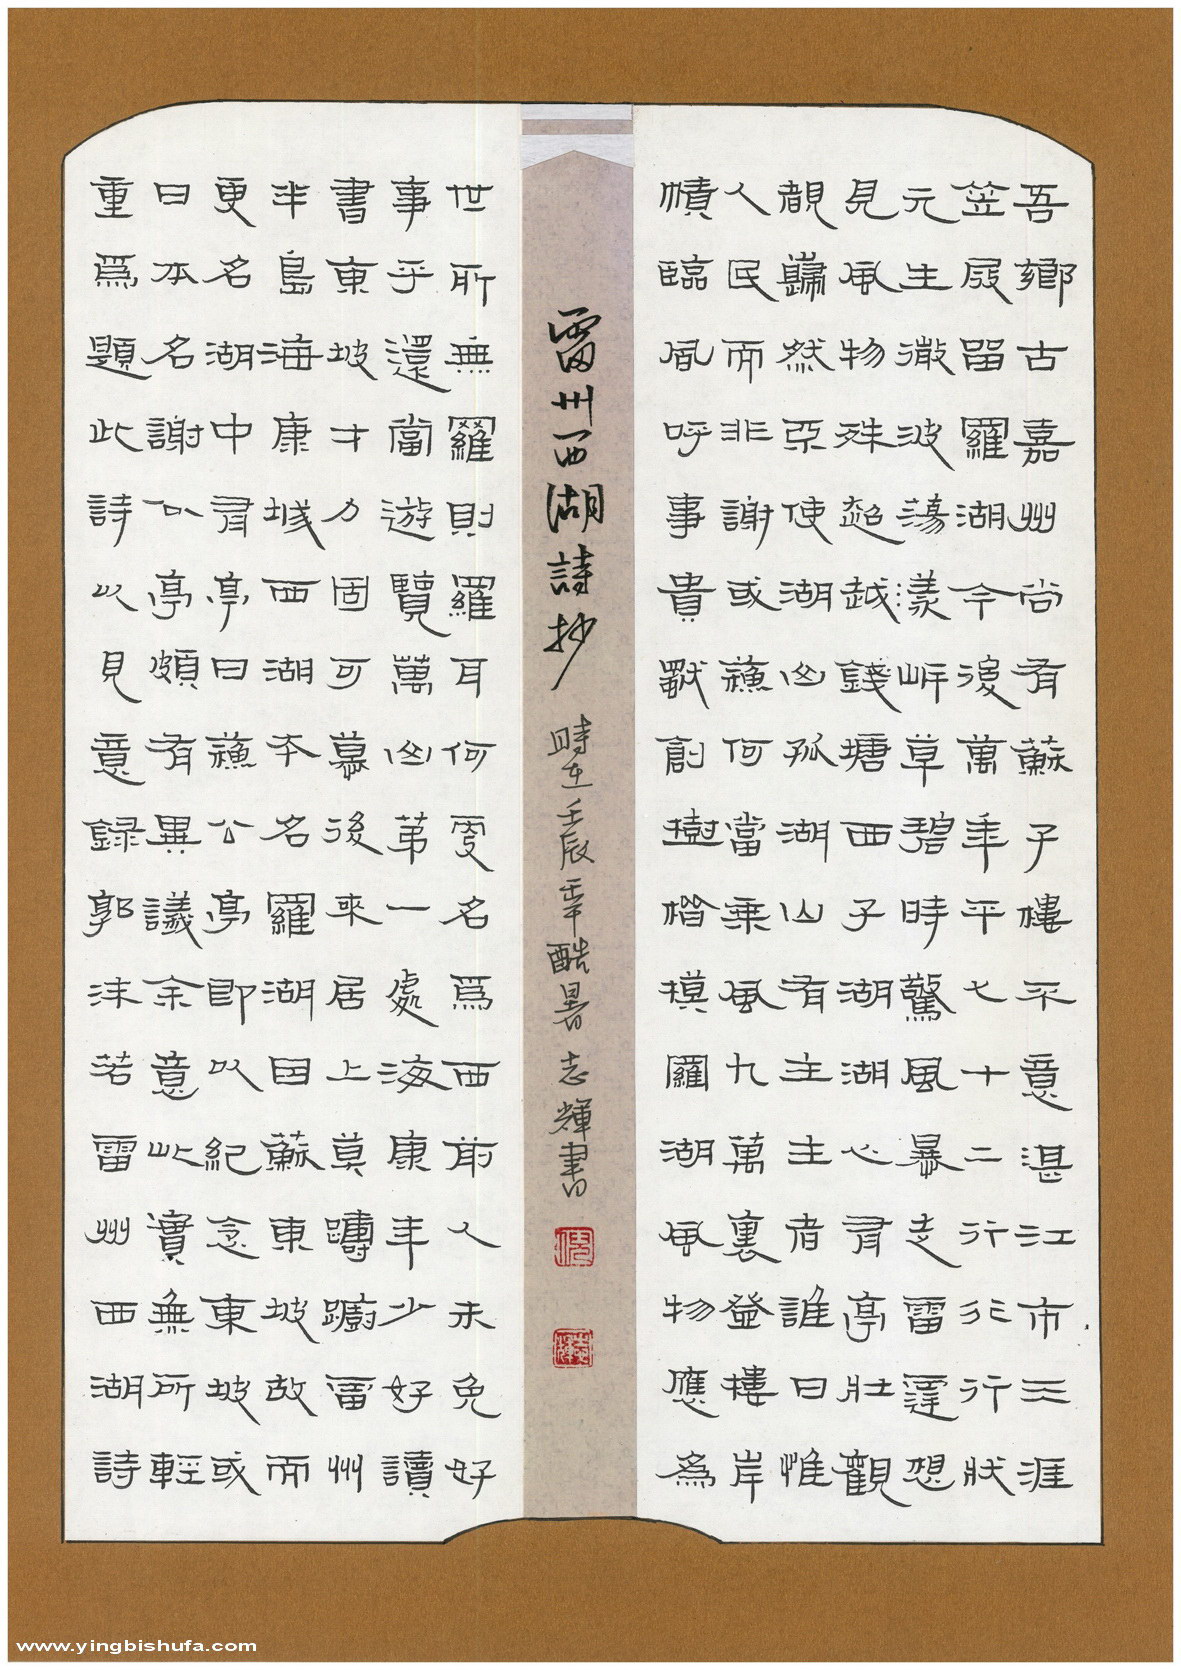 吾鄉古嘉州尚有蘇子樓不意湛江市三涯
笠屐留羅湖今後萬年平七十二行行行狀
元生瀲波蕩漾岍草碧時驚風暴走雷霆想
見風物殊超越錢塘西子湖湖心有亭壯觀
覩巋然亞使湖山孤湖山有主主者誰曰惟
人民而非謝或蘓何當乘風九萬裏登樓岸
幘臨風呼事貴猷創樹楷摸羅湖風物應為
雷州西湖詩抄
時在壬辰年酷暑志輝書
世所無羅則羅耳何處名爲西前人未免好
事乎還當遊覽萬山第一處海康年少好讀
書東坡才力固可慕後來居上莫躊躕雷州
半島海康城西湖本名羅湖因蘇東坡故而
更名湖中有亭曰蘓公亭即以紀念東坡或
曰本名謝公亭頗有異議余意此實無所輕
重爲題此詩以見意録郭沫若雷州西湖詩
志輝
www.yingbishufa.com